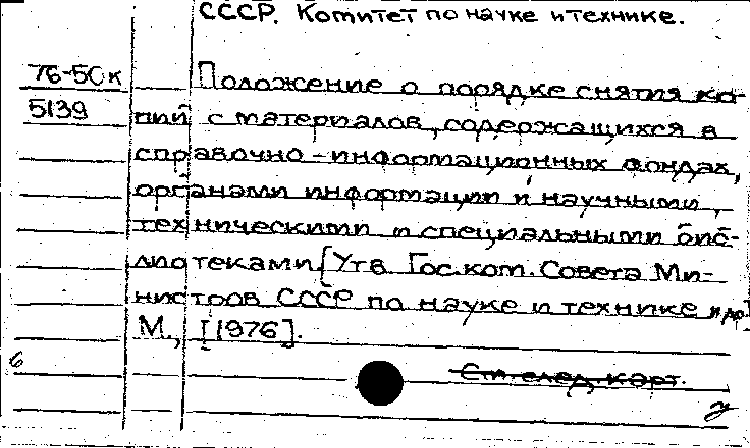 СССР. Комитет по науке и технике.
76-50к
Положение о порядке снятия ко-
5139
пий с материалов, содержащихся в
справочно-информационных фондах,
органами информации и научными,
техническими и специальными биб-
лиотеками [Утв. Гос. ком. Совета Ми-
нистров СССР по науке и технике и др.]
М., [1976].
6
См. след. карт.